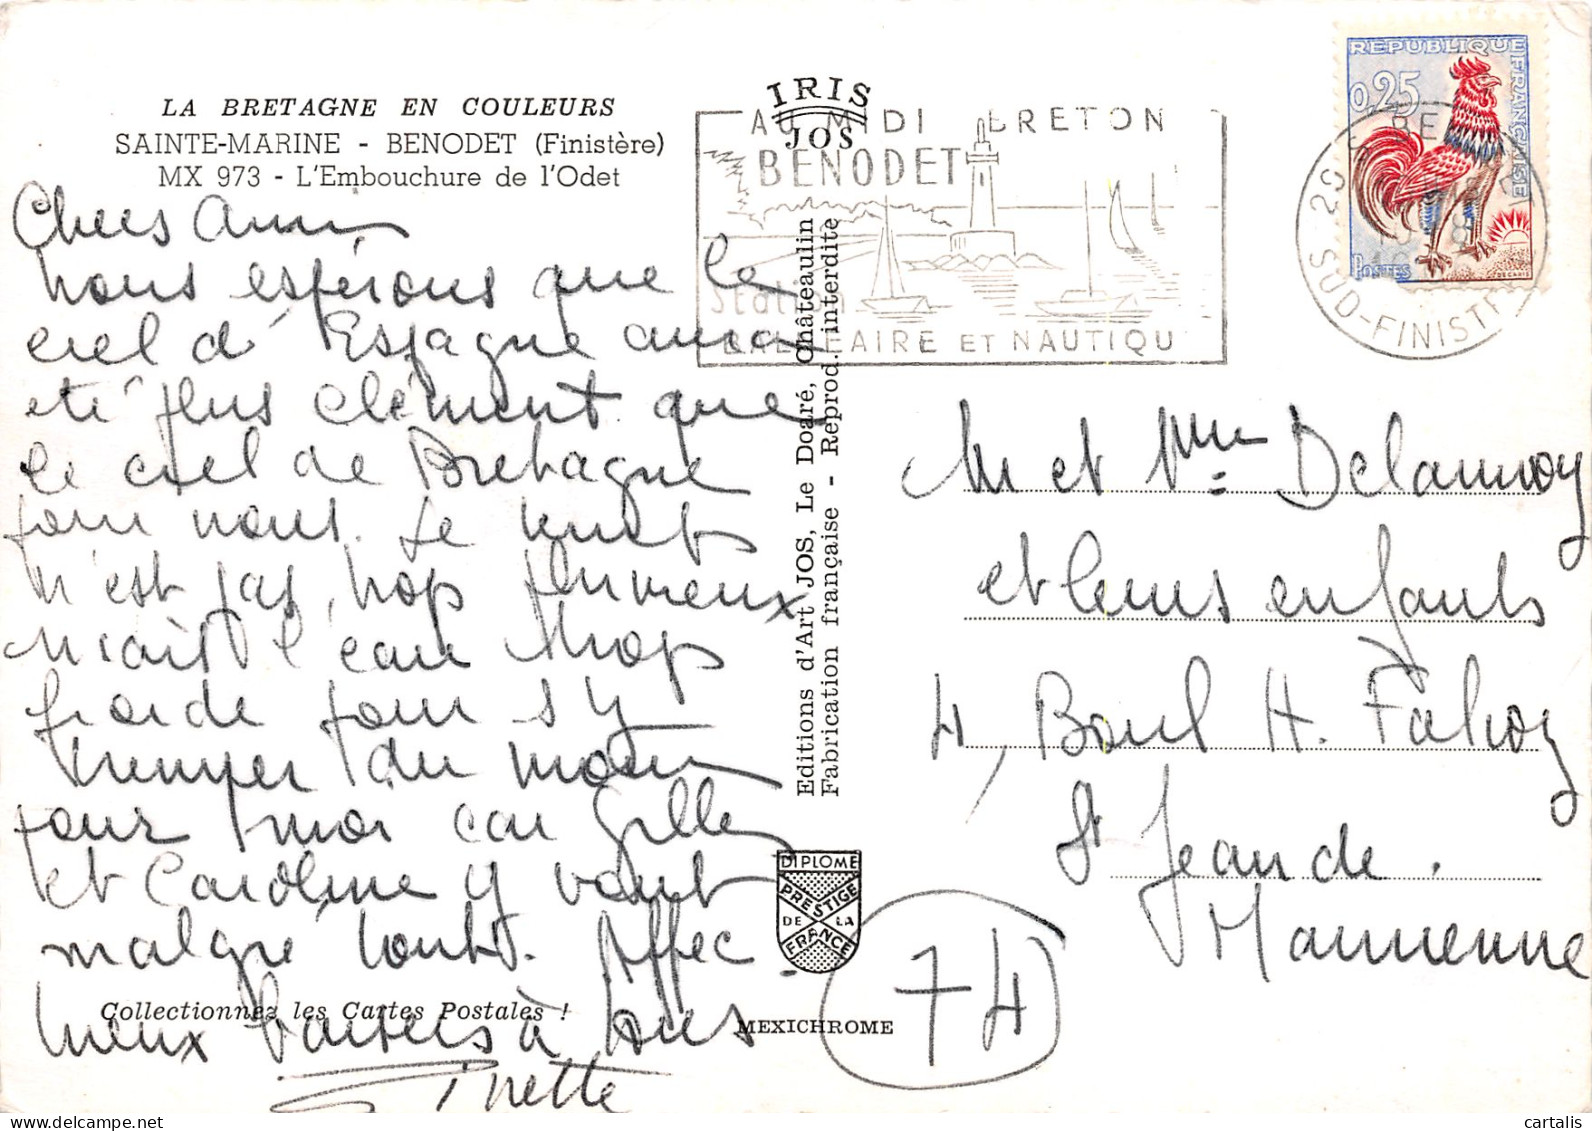 LA BRETAGNE EN COULEURS
SAINTE-MARINE - BENODET (Finistère)
MX 973 - L'Embouchure de l'Odet
Chers Amis
nous espérons que le
ciel d'Espagne aura
été plus clément que
le ciel de Bretagne
pour nous. Le temps
n'est pas trop pluvieux
mais l'eau trop
froide pour s'y
tremper du moins
pour moi car Gilles
et Caroline y vont
malgré tout. Affec
tueux baisers à tous
Ginette
Collectionnez les Cartes Postales !
IRIS
JOS
Editions d'Art JOS, Le Doaré, Châteaulin
Fabrication française - Reprod. interdite
DIPLOME
PRESTIGE
DE LA
FRANCE
MEXICHROME
AU MIDI BRETON
BENODET
Station
BALNEAIRE ET NAUTIQU
REPUBLIQUE FRANÇAISE
0,25
POSTES
29 S
SUD-FINISTE
M et Mme Delannoy
et leurs enfants
4, Boul H. Falcoz
St Jean de
Maurienne
74
cartalis